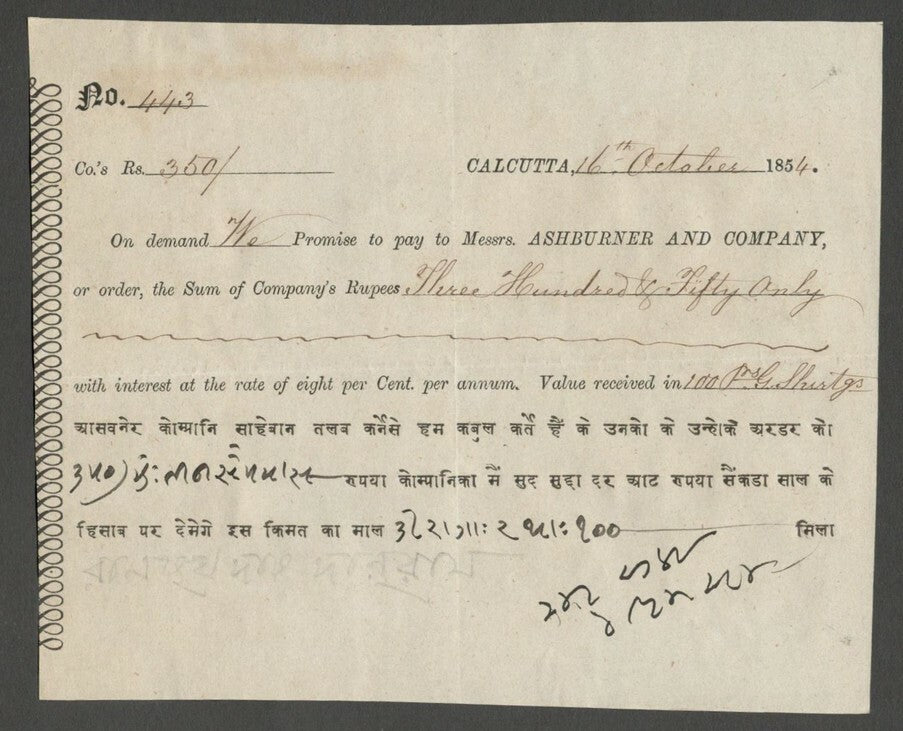 No. 443
Co.'s Rs. 350/ CALCUTTA, 16th October 1854.
On demand We Promise to pay to Messrs. ASHBURNER AND COMPANY,
or order, the Sum of Company's Rupees Three Hundred & Fifty Only
with interest at the rate of eight per Cent. per annum. Value received in 100 Ps G. Shirtgs
आसवनेर कोम्पानि साहेबान तलब कर्नेसे हम कबुल कर्ते हैं के उनको के उन्होके अरडर को
३५०) रुपया कोम्पानिका मैं सुद सुद्दा दर आट रुपया सैंकडा साल के
हिसाब पर देमेगे इस किमत का माल १०० मिला